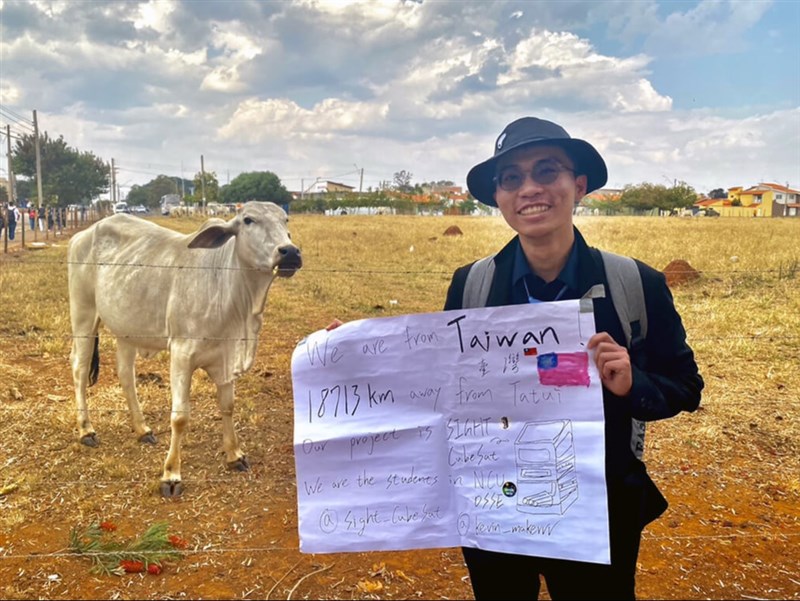 We are from Taiwan!
臺灣
18713 km away from Tatuí
Our project is SIGHT CubeSat
We are the students in NCU DSSE
@sight_cubesat @kevin_makerr